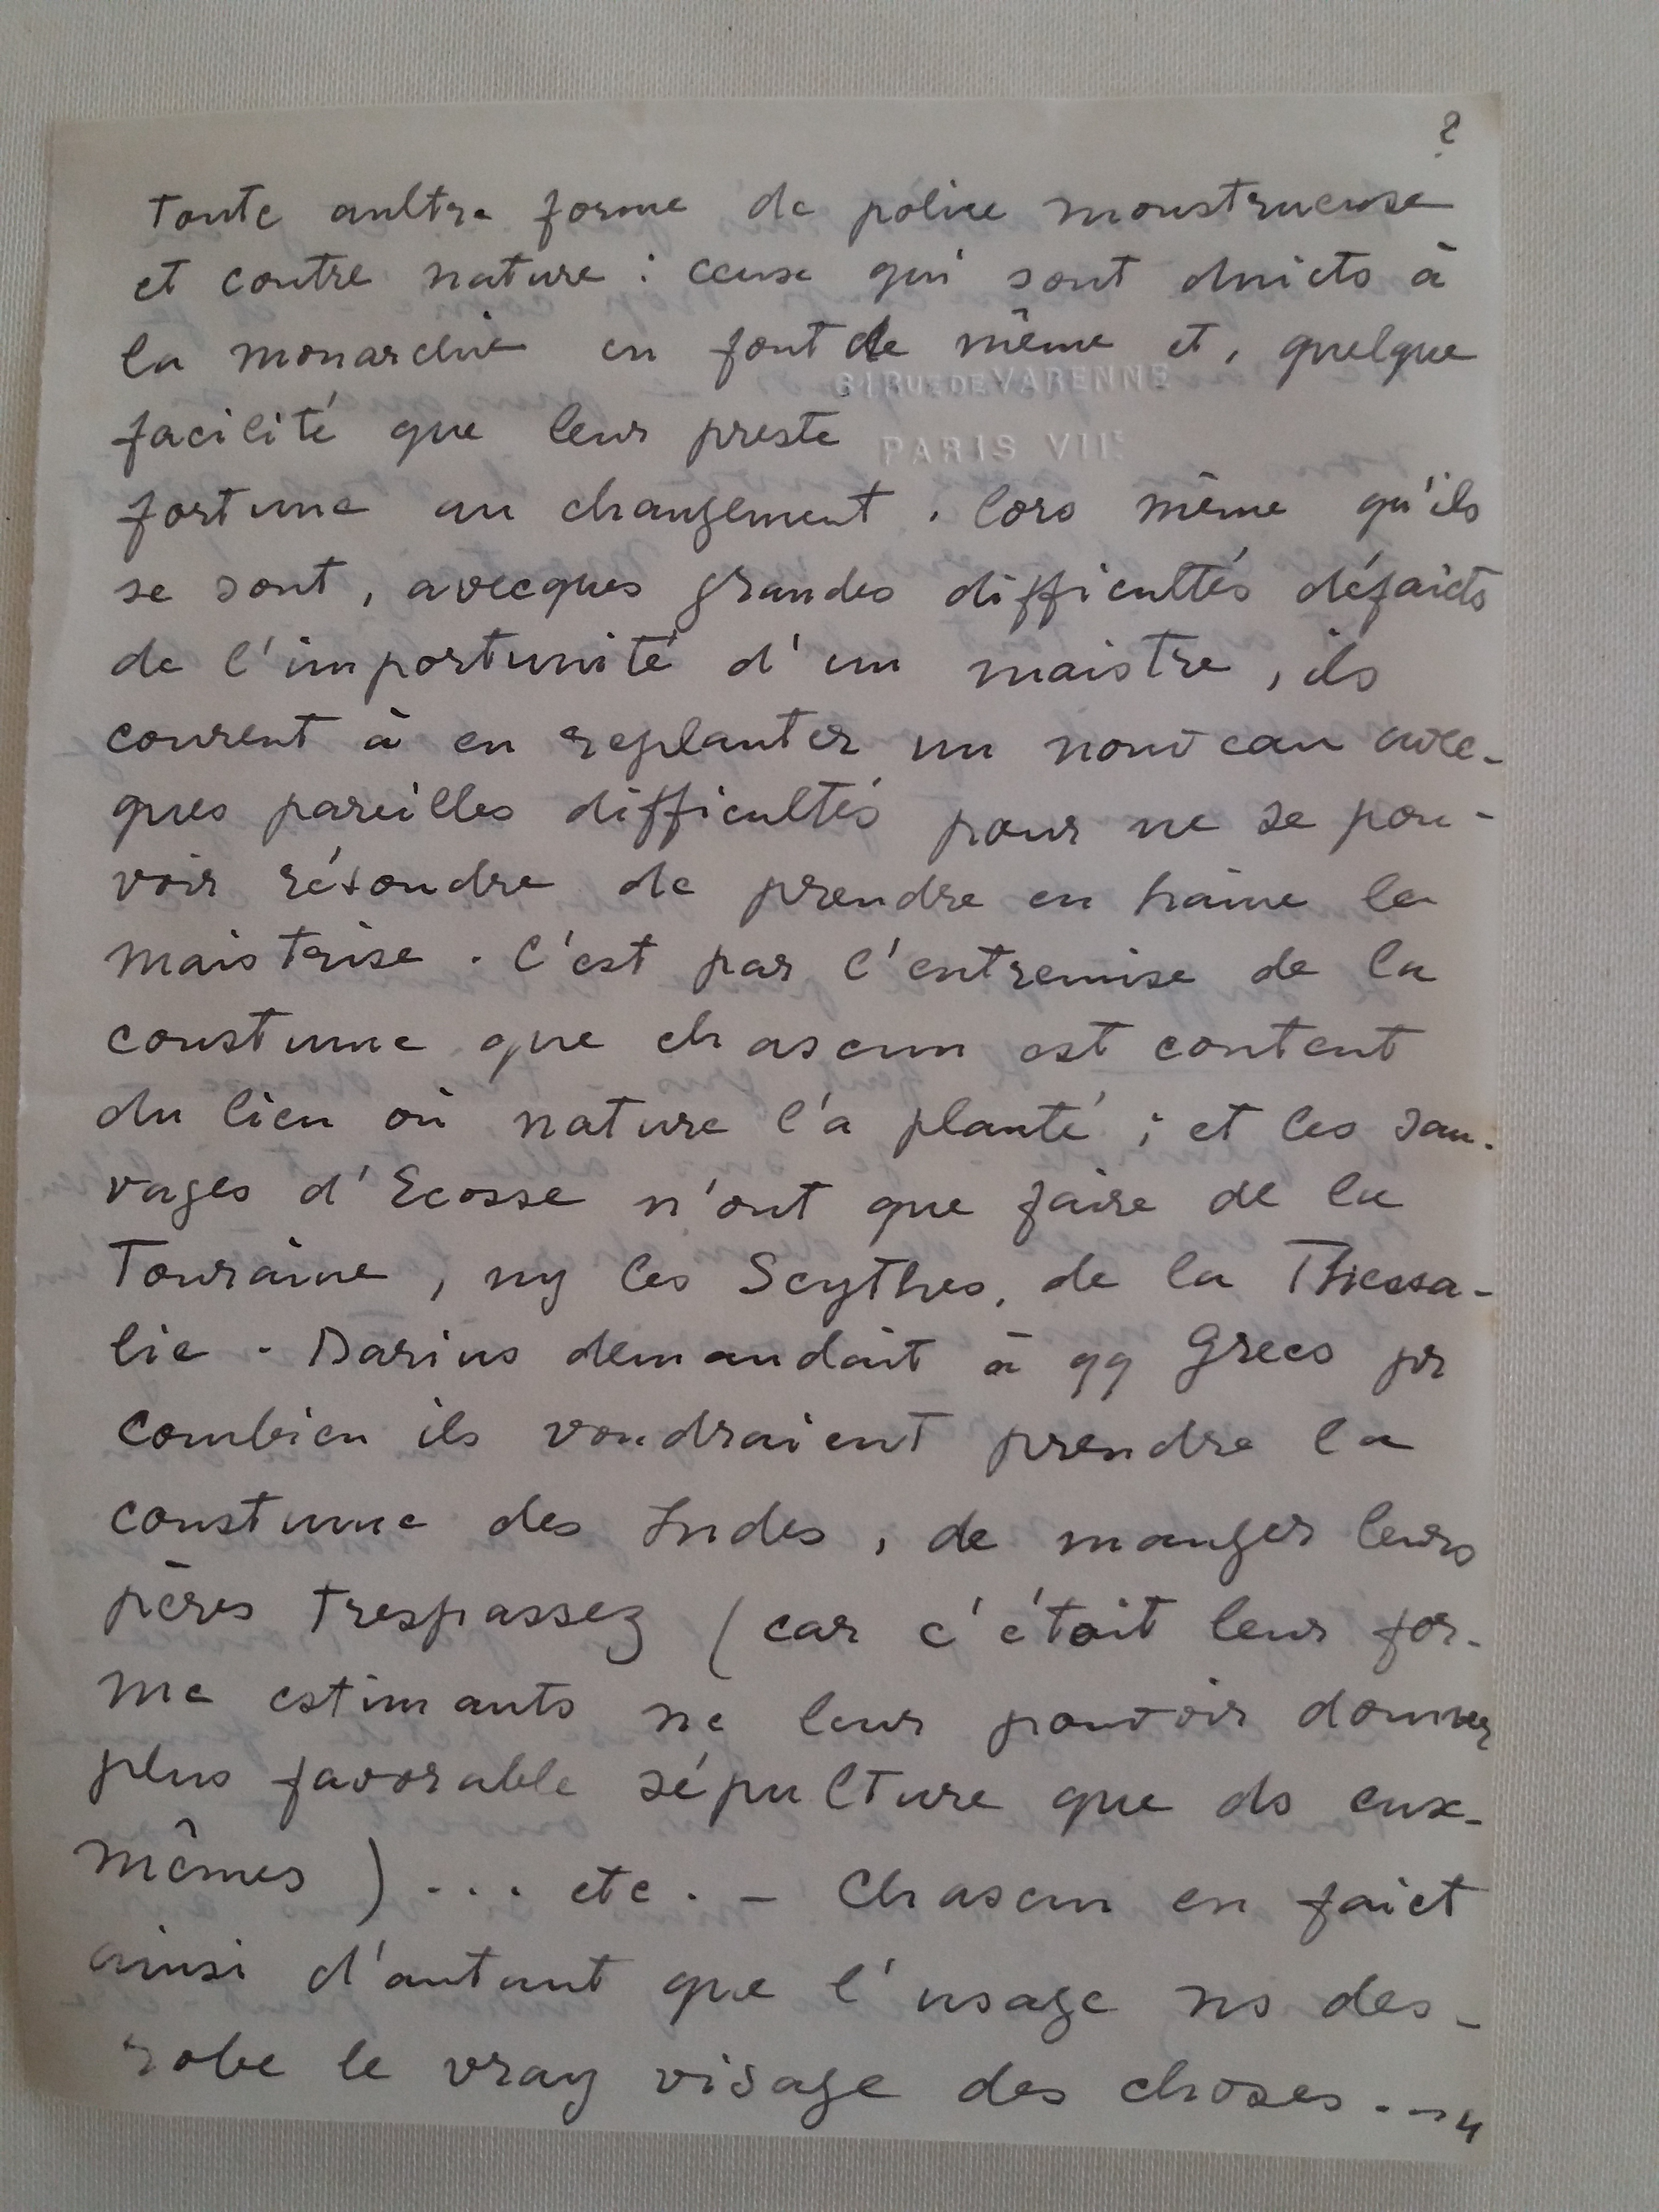 2
Toute aultre forme de police monstrueuse
et contre nature : ceux qui sont duicts à
la monarchie en font de même et, quelque
61 RUE DE VARENNE
facilité que leur preste
PARIS VIIe
fortune au changement, lors même qu'ils
se sont, avecques grandes difficultés défaicts
de l'importunité d'un maistre, ils
courent à en replanter un nouveau avec-
ques pareilles difficultés pour ne se pou-
voir résoudre de prendre en haine la
maistrise. C'est par l'entremise de la
coustume que chascun est content
du lieu où nature l'a planté ; et les sau-
vages d'Ecosse n'ont que faire de la
Touraine, ny les Scythes, de la Thessa-
lie. Darius demandait à qq Grecs pr
combien ils voudraient prendre la
coustume des Indes, de manger leurs
pères trespassez (car c'était leur for-
me estimants ne leur pouvoir donner
plus favorable sépulture que ds eux-
mêmes)... etc. - Chascun en faict
ainsi d'autant que l'usage ns des-
robe le vray visage des choses...